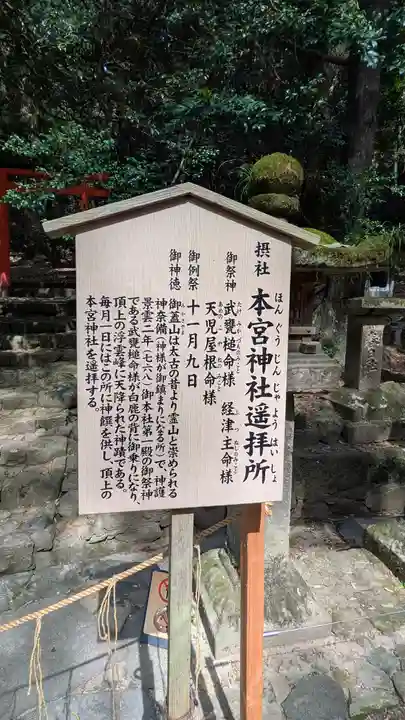 摂社 本宮神社遥拝所
ほんぐうじんじゃようはいしょ
御祭神 武甕槌命様 経津主命様
天児屋根命様
御例祭 十一月九日
御神徳 御蓋山は太古の昔より霊山と崇められる
神奈備（神様が御鎮まりになる所）で、神護
景雲二年（七六八）御本社第一殿の御祭神
である武甕槌命様が白鹿の背に御乗りになり、
頂上の浮雲峰に天降られた神蹟である。
毎月一日にはこの所に神饌を供し、頂上の
本宮神社を遥拝する。